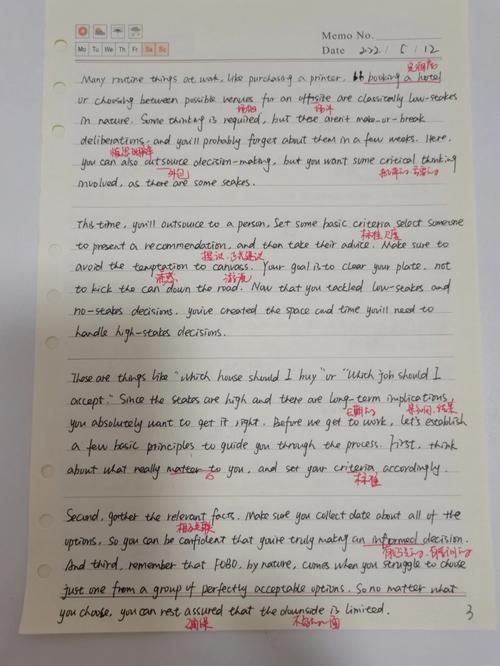 Memo No.
Mo Tu We Th Fr Sa Su
Date 2021 / 5 / 12
Many routine things at work, like purchasing a printer, booking a hotel
or choosing between possible venues for an offsite are classically low-stakes
in nature. Some thinking is required, but these aren't make-or-break
deliberations, and you'll probably forget about them in a few weeks. Here,
you can also outsource decision-making, but you want some critical thinking
外包
involved, as there are some stakes.
This time, you'll outsource to a person. Set some basic criteria, select someone
to present a recommendation, and then take their advice. Make sure to
avoid the temptation to canvass. Your goal is to clear your plate, not
to kick the can down the road. Now that you tackled low-stakes and
no-stakes decisions, you've created the space and time you'll need to
handle high-stakes decisions.
These are things like "which house should I buy" or "Which job should I
accept." Since the stakes are high and there are long-term implications,
you absolutely want to get it right. Before we get to work, let's establish
a few basic principles to guide you through the process. First, think
about what really matter to you, and set your criteria accordingly.
标准
Second, gather the relevant facts. Make sure you collect date about all of the
options, so you can be confident that you're truly making an informed decision.
And third, remember that FOBO, by nature, comes when you struggle to choose
just one from a group of perfectly acceptable options. So no matter what
you choose, you can rest assured that the downside is limited.
3